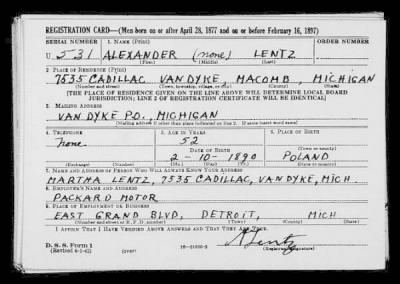 REGISTRATION CARD—(Men born on or after April 28, 1877 and on or before February 16, 1897)
SERIAL NUMBER 1. NAME (Print)
U 531 ALEXANDER (none) LENTZ
(First) (Middle) (Last)
2. PLACE OF RESIDENCE (Print)
7535 CADILLAC VAN DYKE, MACOMB, MICHIGAN
(Number and street) (Town, township, village, or city) (County) (State)
[THE PLACE OF RESIDENCE GIVEN ON THE LINE ABOVE WILL DETERMINE LOCAL BOARD
JURISDICTION; LINE 2 OF REGISTRATION CERTIFICATE WILL BE IDENTICAL]
3. MAILING ADDRESS
VAN DYKE P.O., MICHIGAN
[Mailing address if other than place indicated on line 2. If same insert word same]
4. TELEPHONE 5. AGE IN YEARS 6. PLACE OF BIRTH
none 52
DATE OF BIRTH (Town or county)
2-10-1890 POLAND
(Exchange) (Number) (Mo.) (Day) (Yr.) (State or country)
7. NAME AND ADDRESS OF PERSON WHO WILL ALWAYS KNOW YOUR ADDRESS
MARTHA LENTZ, 7535 CADILLAC, VAN DYKE, MICH
8. EMPLOYER'S NAME AND ADDRESS
PACKARD MOTOR
9. PLACE OF EMPLOYMENT OR BUSINESS
EAST GRAND BLVD, DETROIT, MICH
(Number and street or R. F. D. number) (Town) (County) (State)
I AFFIRM THAT I HAVE VERIFIED ABOVE ANSWERS AND THAT THEY ARE TRUE.
D. S. S. Form 1
(Revised 4-1-42) (over) A Lentz
(Registrant's signature)